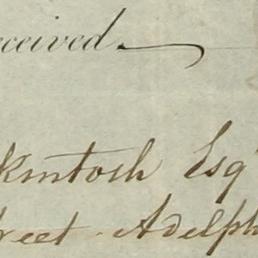 eceived
kintosh Esqr
reet Adelph